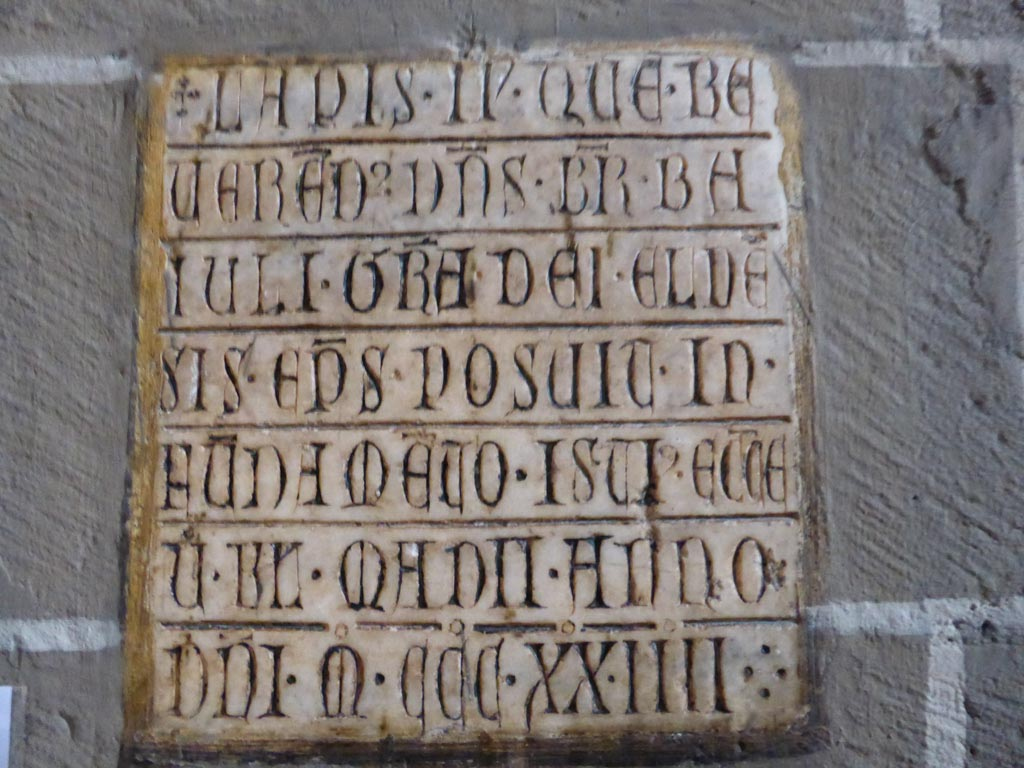 ✣ LAPIS · IP · QUĒ · BE
VERĒD⁹ DN̄S · BR̄ · BA
IULI · GR̄A DEI · ELDĒ
SIS · EP̄S POSUIT IN ·
FŪDAMĒTO · ISTI⁹ ECCE
U · BN · MADII · ANNO
DN̄I · M · CCC · XXIIII